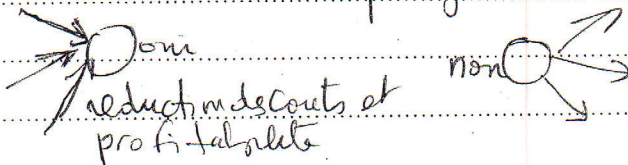 oui
non
reduction des couts et
profitabilite